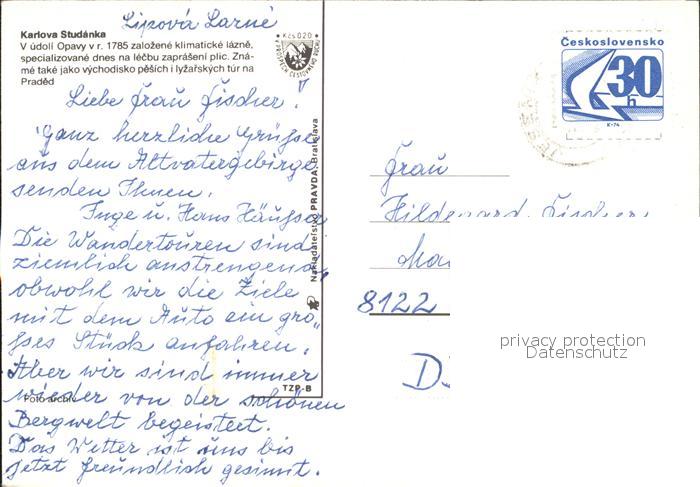 Lipová Lázně
Karlova Studánka
V údolí Opavy v r. 1785 založené klimatické lázně,
specializované dnes na léčbu zaprášení plic. Zná-
mé také jako východisko pěších i lyžařských túr na
Praděd
Kčs 0,20
Liebe Frau Fischer!
Ganz herzliche Grüsse
aus dem Altvatergebirge
senden Ihnen.
Inge u. Hans Häusser
Die Wandertouren sind
ziemlich anstrengend,
obwohl wir die Ziele
mit dem Auto ein gro„
sses Stück anfahren.
Aber wir sind immer
wieder von der schönen
Bergwelt begeistert.
Das Wetter ist uns bis
jetzt freundlich gesinnt.
Foto archiv
TZP-B
Nakladatelství PRAVDA, Bratislava
Československo
30
h
K-74
Frau
Hildegard Fischer
8122
privacy protection
Datenschutz